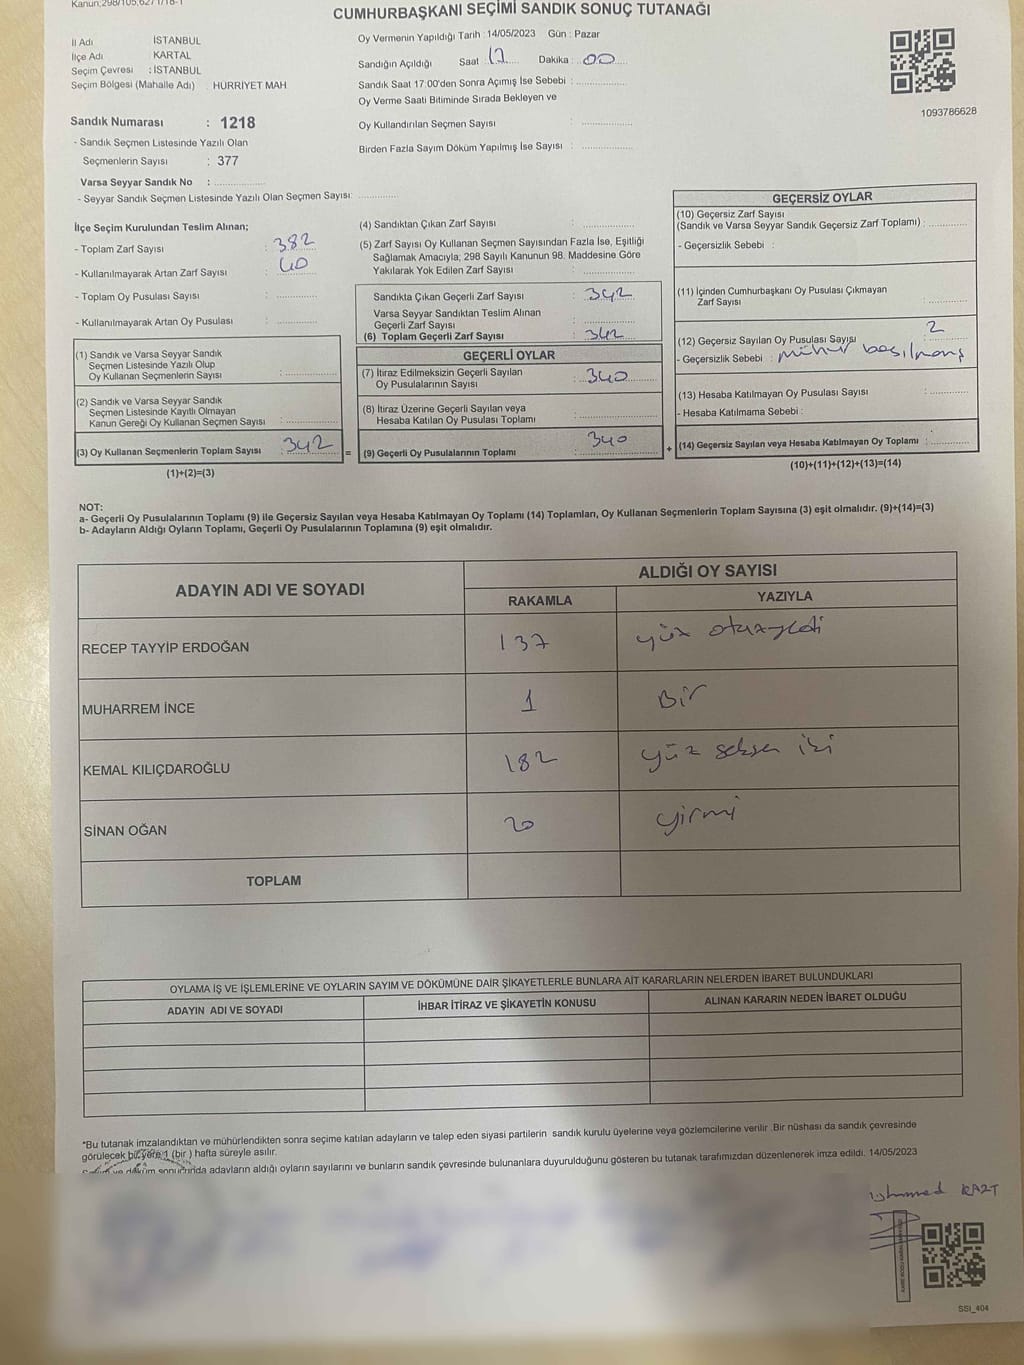 Kanun;298/105,6271/18-1
CUMHURBAŞKANI SEÇİMİ SANDIK SONUÇ TUTANAĞI
İl Adı İSTANBUL
İlçe Adı KARTAL
Seçim Çevresi : İSTANBUL
Seçim Bölgesi (Mahalle Adı) : HÜRRİYET MAH
Sandık Numarası : 1218
- Sandık Seçmen Listesinde Yazılı Olan
Seçmenlerin Sayısı : 377
Varsa Seyyar Sandık No :
- Seyyar Sandık Seçmen Listesinde Yazılı Olan Seçmen Sayısı:
Oy Vermenin Yapıldığı Tarih : 14/05/2023 Gün : Pazar
Sandığın Açıldığı Saat 17 Dakika : 00
Sandık Saat 17:00'den Sonra Açımış İse Sebebi :
Oy Verme Saati Bitiminde Sırada Bekleyen ve
Oy Kullandırılan Seçmen Sayısı :
Birden Fazla Sayım Döküm Yapılmış İse Sayısı :
1093786628
İlçe Seçim Kurulundan Teslim Alınan;
- Toplam Zarf Sayısı : 382
- Kullanılmayarak Artan Zarf Sayısı : 40
- Toplam Oy Pusulası Sayısı :
- Kullanılmayarak Artan Oy Pusulası :
(1) Sandık ve Varsa Seyyar Sandık
Seçmen Listesinde Yazılı Olup
Oy Kullanan Seçmenlerin Sayısı :
(2) Sandık ve Varsa Seyyar Sandık
Seçmen Listesinde Kayıtlı Olmayan
Kanun Gereği Oy Kullanan Seçmen Sayısı :
(3) Oy Kullanan Seçmenlerin Toplam Sayısı : 342 =
(1)+(2)=(3)
(4) Sandıktan Çıkan Zarf Sayısı :
(5) Zarf Sayısı Oy Kullanan Seçmen Sayısından Fazla İse, Eşitliği
Sağlamak Amacıyla; 298 Sayılı Kanunun 98. Maddesine Göre
Yakılarak Yok Edilen Zarf Sayısı :
Sandıkta Çıkan Geçerli Zarf Sayısı : 342
Varsa Seyyar Sandıktan Teslim Alınan
Geçerli Zarf Sayısı :
(6) Toplam Geçerli Zarf Sayısı : 342
GEÇERLİ OYLAR
(7) İtiraz Edilmeksizin Geçerli Sayılan
Oy Pusulalarının Sayısı : 340
(8) İtiraz Üzerine Geçerli Sayılan veya
Hesaba Katılan Oy Pusulası Toplamı :
(9) Geçerli Oy Pusulalarının Toplamı : 340 +
GEÇERSİZ OYLAR
(10) Geçersiz Zarf Sayısı
(Sandık ve Varsa Seyyar Sandık Geçersiz Zarf Toplamı) :
- Geçersizlik Sebebi :
(11) İçinden Cumhurbaşkanı Oy Pusulası Çıkmayan
Zarf Sayısı :
(12) Geçersiz Sayılan Oy Pusulası Sayısı : 2
- Geçersizlik Sebebi : mühür basılmamış
(13) Hesaba Katılmayan Oy Pusulası Sayısı :
- Hesaba Katılmama Sebebi :
(14) Geçersiz Sayılan veya Hesaba Katılmayan Oy Toplamı :
(10)+(11)+(12)+(13)=(14)
NOT:
a- Geçerli Oy Pusulalarının Toplamı (9) ile Geçersiz Sayılan veya Hesaba Katılmayan Oy Toplamı (14) Toplamları, Oy Kullanan Seçmenlerin Toplam Sayısına (3) eşit olmalıdır. (9)+(14)=(3)
b- Adayların Aldığı Oyların Toplamı, Geçerli Oy Pusulalarının Toplamına (9) eşit olmalıdır.
ADAYIN ADI VE SOYADI ALDIĞI OY SAYISI
RAKAMLA YAZIYLA
RECEP TAYYİP ERDOĞAN 137 yüz otuzyedi
MUHARREM İNCE 1 Bir
KEMAL KILIÇDAROĞLU 182 yüz seksen iki
SİNAN OĞAN 20 yirmi
TOPLAM
OYLAMA İŞ VE İŞLEMLERİNE VE OYLARIN SAYIM VE DÖKÜMÜNE DAİR ŞİKAYETLERLE BUNLARA AİT KARARLARIN NELERDEN İBARET BULUNDUKLARI
ADAYIN ADI VE SOYADI İHBAR İTİRAZ VE ŞİKAYETİN KONUSU ALINAN KARARIN NEDEN İBARET OLDUĞU
*Bu tutanak imzalandıktan ve mühürlendikten sonra seçime katılan adayların ve talep eden siyasi partilerin sandık kurulu üyelerine veya gözlemcilerine verilir .Bir nüshası da sandık çevresinde
görülecek bir yere 1 (bir ) hafta süreyle asılır.
döküm sonucunda adayların aldığı oyların sayılarını ve bunların sandık çevresinde bulunanlara duyurulduğunu gösteren bu tutanak tarafımızdan düzenlenerek imza edildi. 14/05/2023
SSI_404